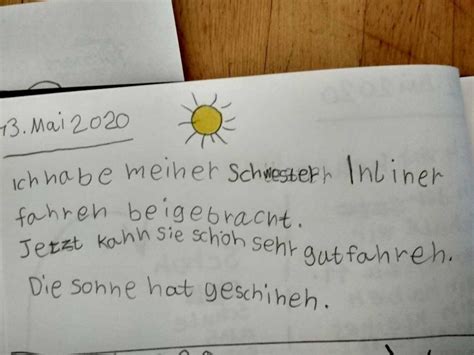 13. Mai 2020
Ich habe meiner Schwester Inliner
fahren beigebracht.
Jetzt kann sie schon sehr gut fahren.
Die sonne hat geschinen.